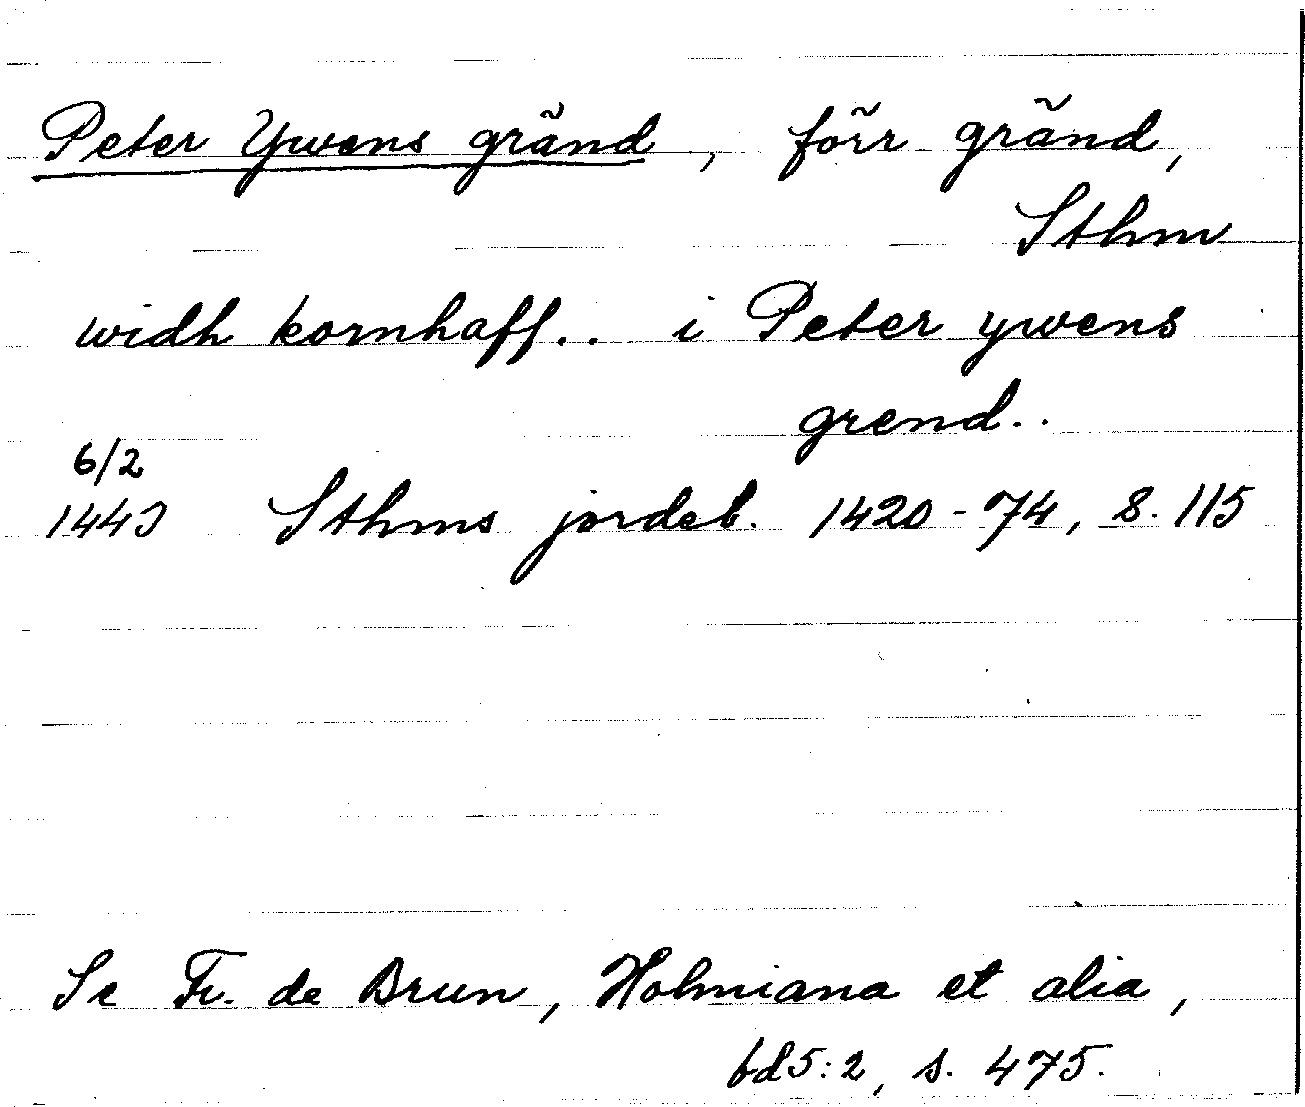 Peter Ywens gränd, förr gränd,
Sthm
widh kornhaff.. i Peter ywens
grend..
6/2
1443 Sthms jordeb. 1420-74, s. 115
Se Fr. de Brun, Holmiana et alia,
bd 5:2, s. 475.